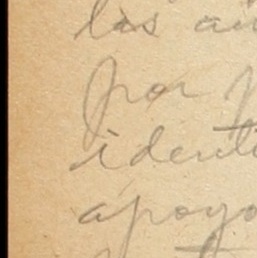 las
por
identi
apoyo